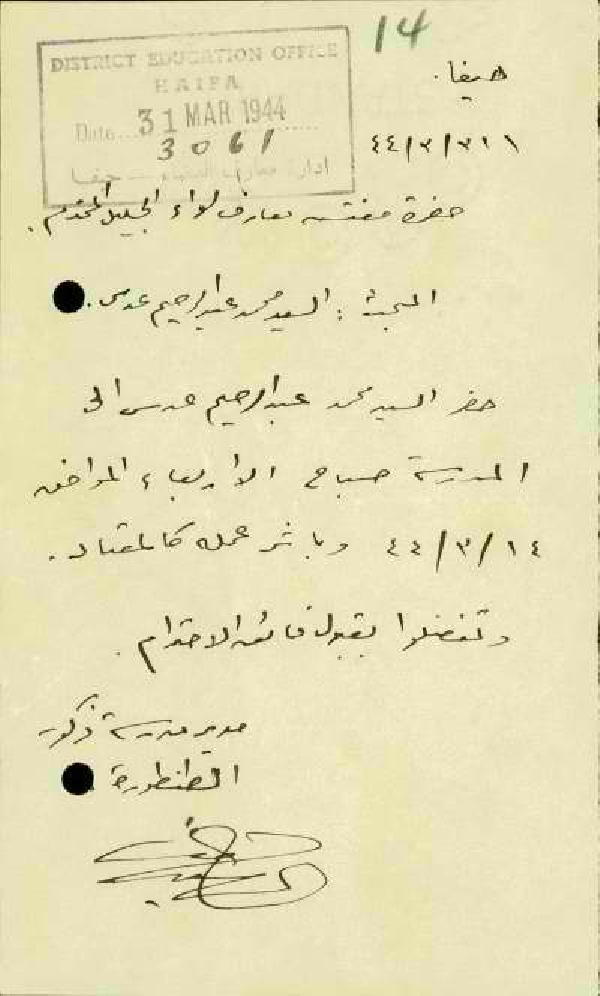 14
DISTRICT EDUCATION OFFICE
HAIFA
Date 31 MAR 1944
3061
حيفا.
٤٤/٣/٣١
حضرة مفتش معارف لواء الجليل المحترم.
المبحث : السيد محمد عبد الرحيم عدس.
حضر السيد محمد عبد الرحيم عدس الى
المدرسة صباح الاربعاء الموافق
٤٤/٣/١٤ وباشر عمله كالمعتاد.
وتفضلوا بقبول فائق الاحترام.
مدير مدرسة ذكور
الطنطورة